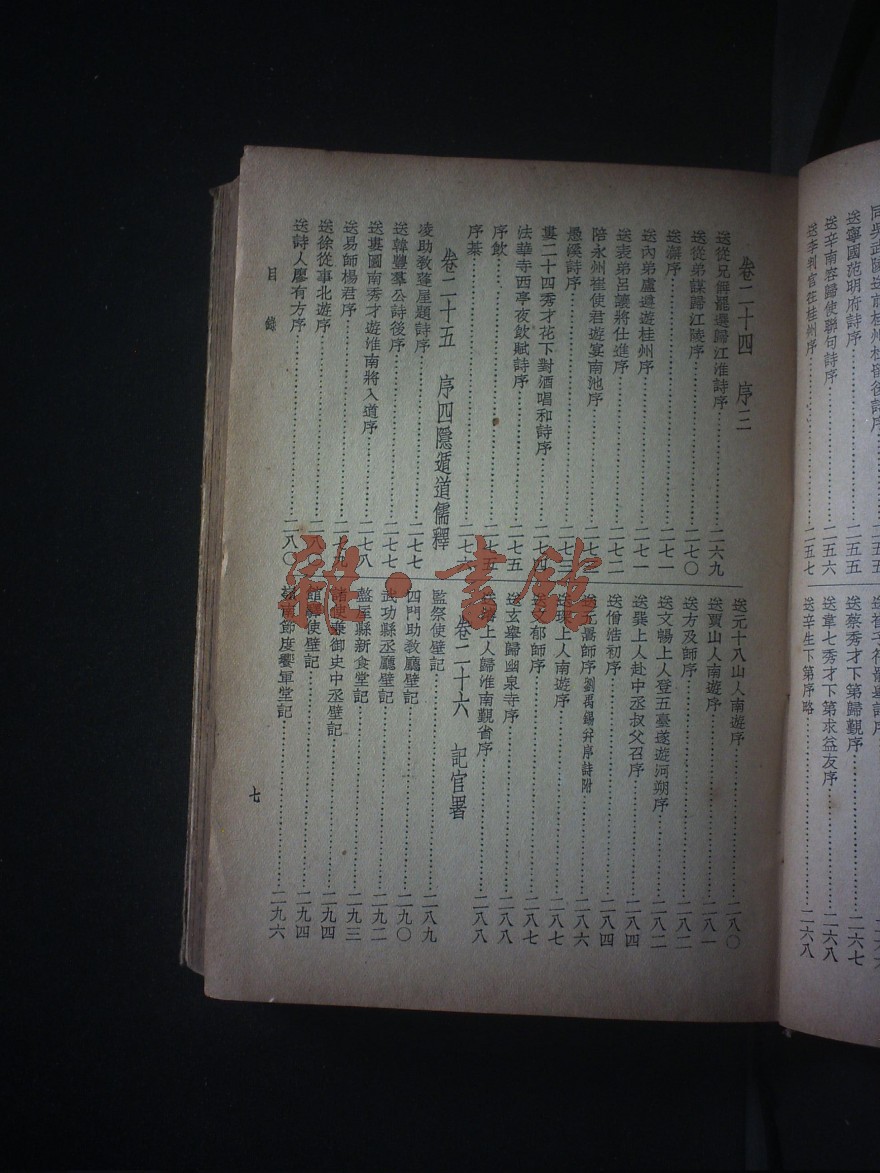 同吳武陵送前桂州杜留後詩序
送寧國范明府詩序……二五五
送辛南容歸使聯句詩序……二五六
送李判官往桂州序……二五七
送蔡秀才下第歸覲序……二六七
送韋七秀才下第求益友序……二六八
送辛生下第序略……二六八
卷二十四 序三
送從兄偁罷選歸江淮詩序……二六九
送從弟謀歸江陵序……二七〇
送澥序……二七一
送內弟盧遵遊桂州序……二七一
送表弟呂讓將仕進序……二七二
陪永州崔使君遊宴南池序
愚溪詩序……二七三
婁二十四秀才花下對酒唱和詩序……二七四
法華寺西亭夜飲賦詩序……二七五
序飲……二七五
序棊
卷二十五 序四隱遁道儒釋
凌助教蓬屋題詩序……二七七
送韓豐羣公詩後序……二七七
送婁圖南秀才遊淮南將入道序……二七八
送易師楊君序……二七九
送徐從事北遊序……二八〇
送詩人廖有方序……二八〇
送元十八山人南遊序……二八〇
送賈山人南遊序……二八一
送方及師序……二八二
送文暢上人登五臺遂遊河朔序……二八二
送巽上人赴中丞叔父召序……二八四
送僧浩初序……二八四
送元暠師序劉禹錫幷序詩附……二八六
送琛上人南遊序……二八七
郁師序……二八七
送玄舉歸幽泉寺序……二八八
上人歸淮南覲省序……二八八
卷二十六 記官署
監祭使壁記……二八九
四門助教廳壁記……二九〇
武功縣丞廳壁記……二九二
盩厔縣新食堂記……二九三
諸使兼御史中丞壁記……二九四
館驛使壁記……二九四
嶺南節度饗軍堂記……二九六
目錄
七
雜·書館